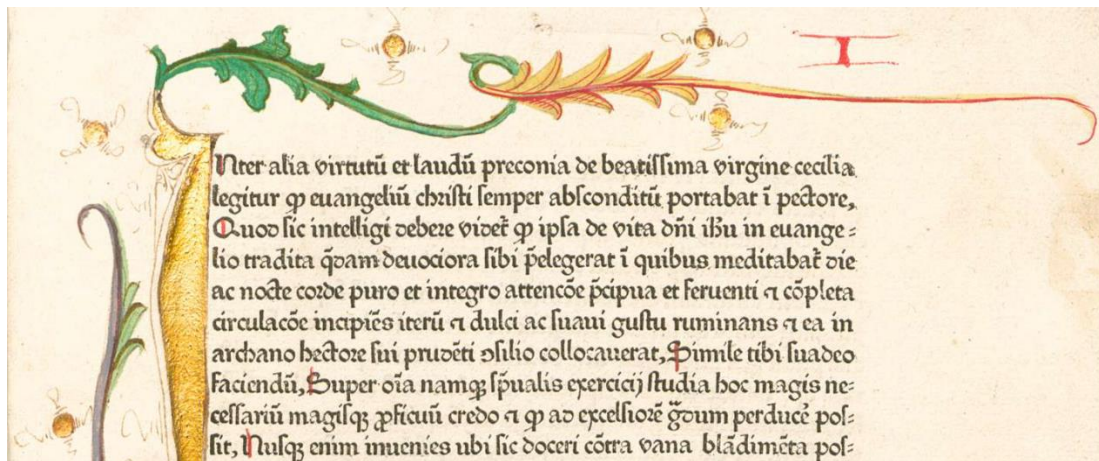 I
Nter alia virtutū et laudū preconia de beatissima virgine cecilia
legitur ꝙ euangeliū christi semper absconditū portabat ī pectore,
Quod sic intelligi debere videt᷑ ꝙ ipsa de vita dn̄i ih̄u in euange⸗
lio tradita q̄dam deuociora sibi p̄elegerat ī quibus meditabat᷑ die
ac nocte corde puro et integro attencōe p̄cipua et feruenti ⁊ cōpleta
circulacōe incipiēs iterū ⁊ dulci ac suaui gustu ruminans ⁊ ea in
archano hectore sui prudēti ꝯsilio collocauerat, Simile tibi suadeo
faciendū, Super oīa namqꝫ sp̄ualis exercicij studia hoc magis ne⸗
cessariū magisqꝫ ꝓficuū credo ⁊ ꝙ ad excelsiorē g̊dum perducē pos⸗
sit, Nusqꝫ enim inuenies ubi sic doceri cōtra vana blādimēta pos⸗